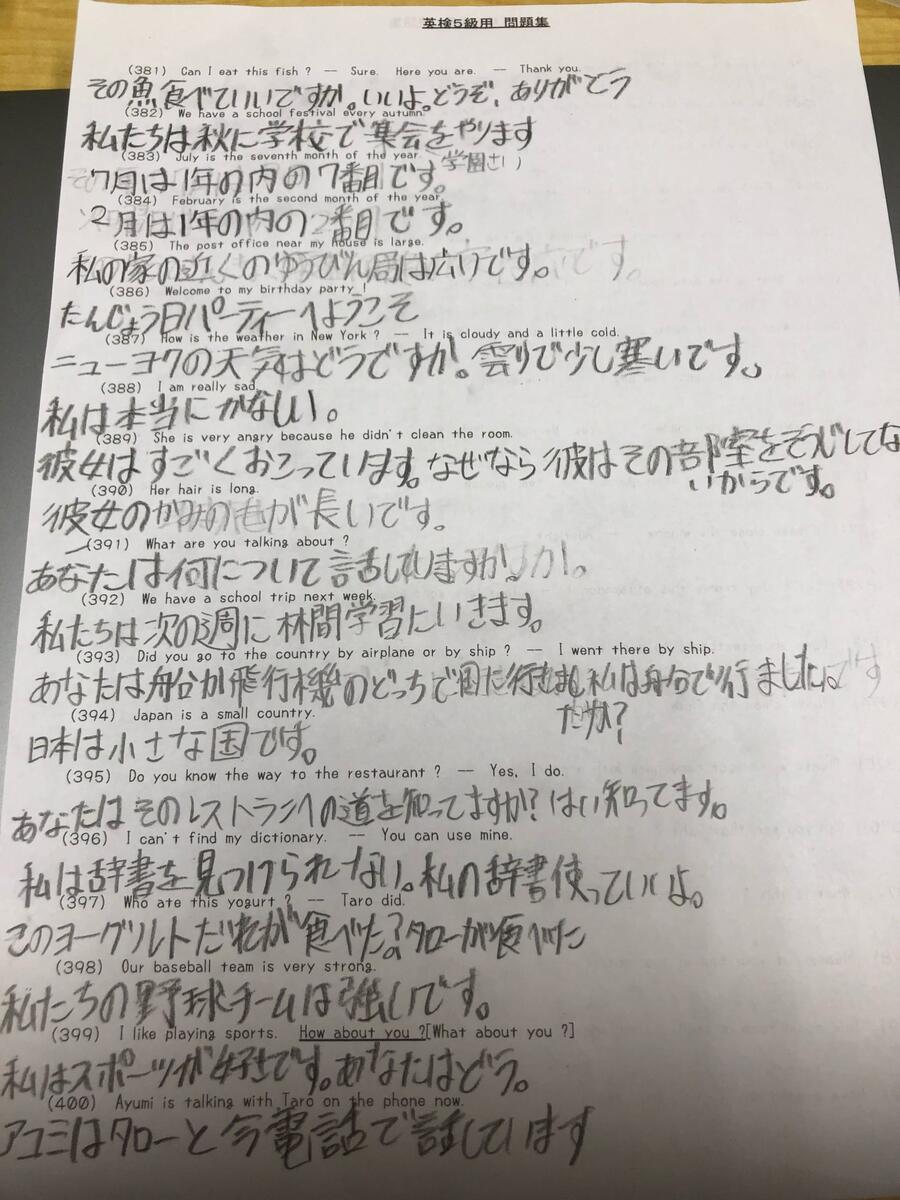 英検5級用 問題集
(381) Can I eat this fish ? -- Sure. Here you are. -- Thank you.
その魚食べていいですか。いいよ。どうぞ。ありがとう
(382) We have a school festival every autumn.
私たちは秋に学校で集会をやります
(383) July is the seventh month of the year. (学園さい)
7月は1年の内の7番目です。
(384) February is the second month of the year.
2月は1年の内の2番目です。
(385) The post office near my house is large.
私の家の近くのゆうびん局は広いです。
(386) Welcome to my birthday party !
たんじょう日パーティーへようこそ
(387) How is the weather in New York ? -- It is cloudy and a little cold.
ニューヨクの天気はどうですか。雲りで少し寒いです。
(388) I am really sad.
私は本当にかなしい。
(389) She is very angry because he didn't clean the room.
彼女はすごくおこっています。なぜなら彼はその部室をそうじしてな
いからです。
(390) Her hair is long.
彼女のかみの毛が長いです。
(391) What are you talking about ?
あなたは何について話していますか。
(392) We have a school trip next week.
私たちは次の週に林間学習にいきます。
(393) Did you go to the country by airplane or by ship ? -- I went there by ship.
あなたは船か飛行機のどっちで国に行きまし 私は船で行ました
たか?
(394) Japan is a small country.
日本は小さな国です。
(395) Do you know the way to the restaurant ? -- Yes, I do.
あなたはそのレストランへの道を知ってますか? はい知ってます。
(396) I can't find my dictionary. -- You can use mine.
私は辞書を見つけられない。私の辞書使っていいよ。
(397) Who ate this yogurt ? -- Taro did.
このヨーグルトだれが食べた? タローが食べた
(398) Our baseball team is very strong.
私たちの野球チームは強いです。
(399) I like playing sports. How about you ?[What about you ?]
私はスポーツが好きです。あなたはどう。
(400) Ayumi is talking with Taro on the phone now.
アユミはタローと今電話で話しています